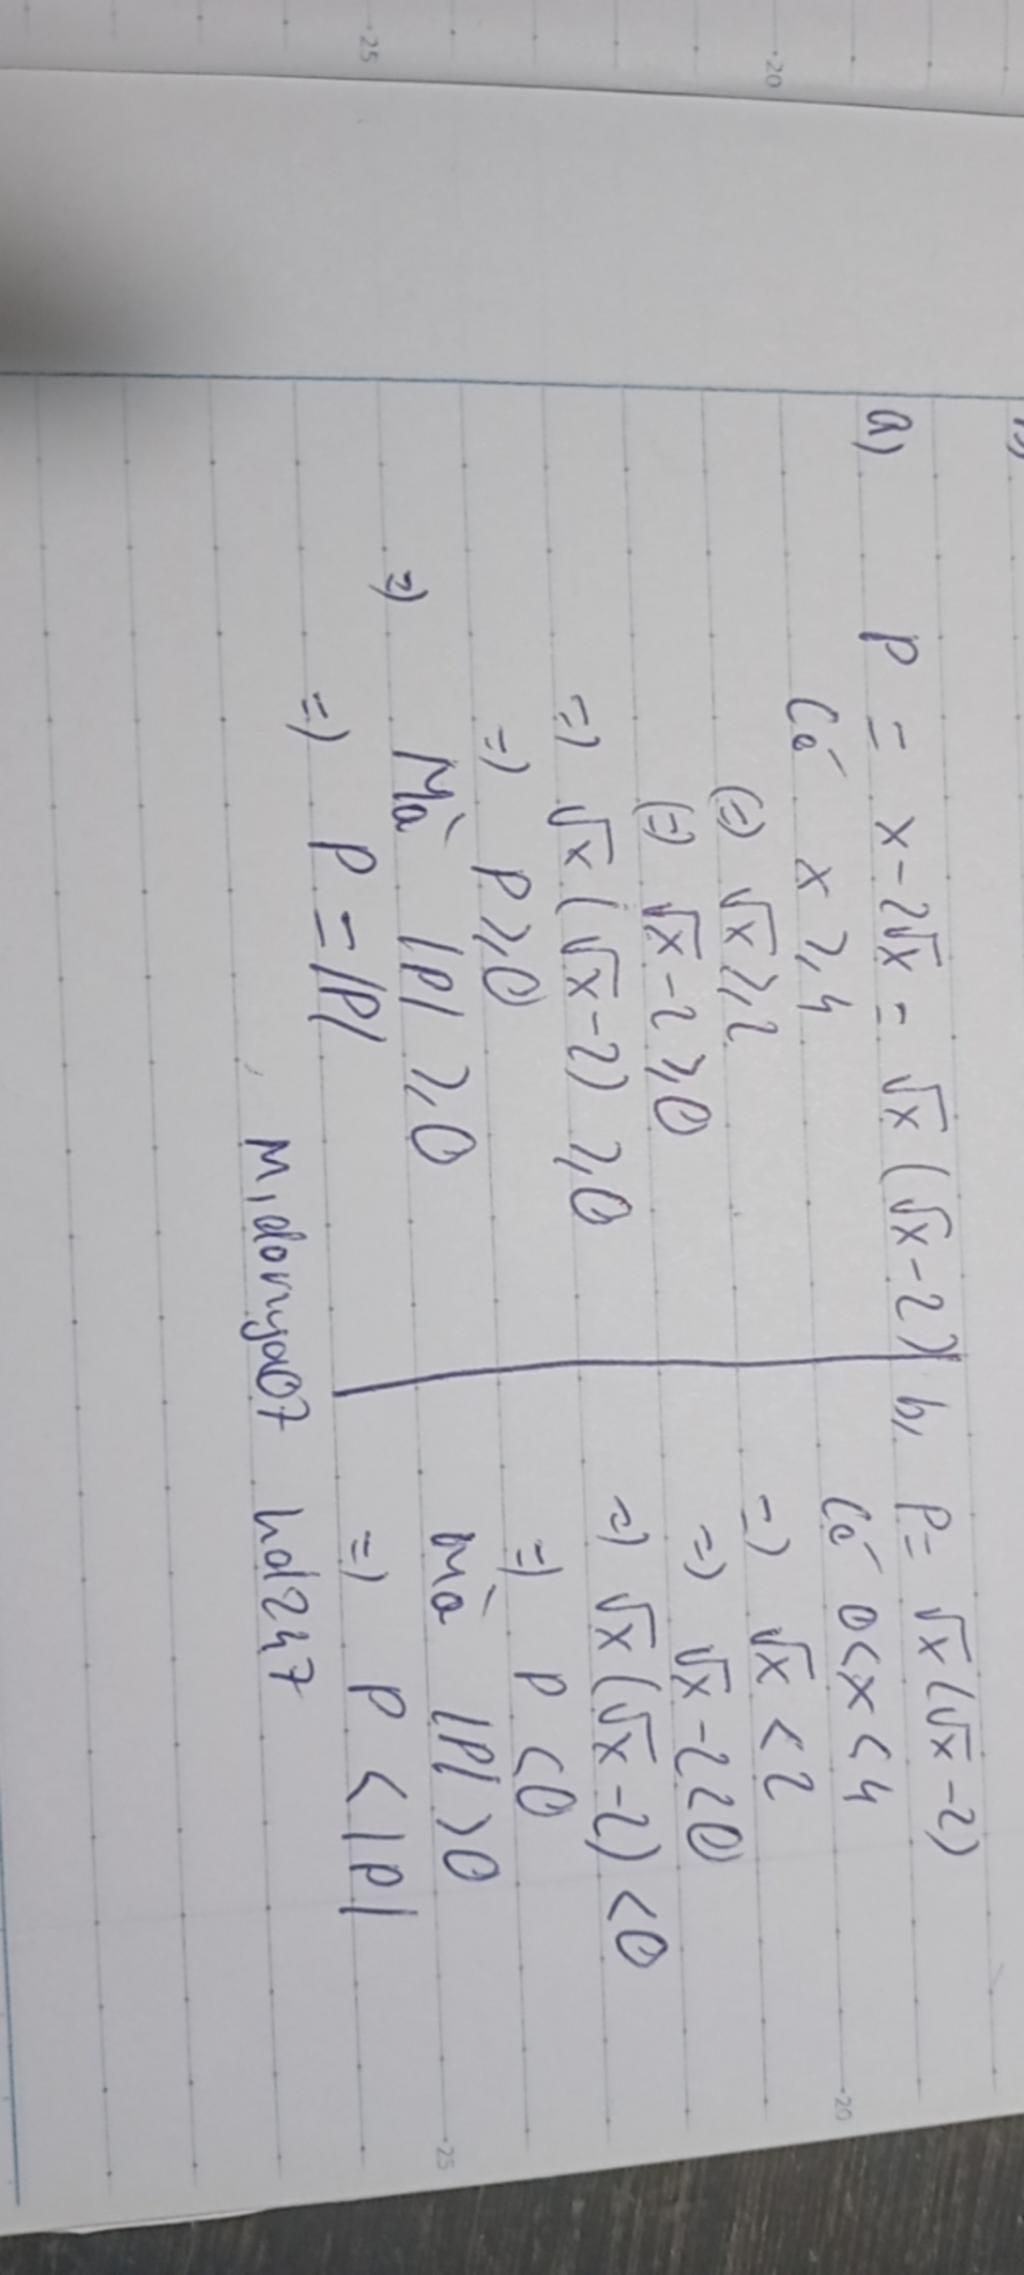 a) P = x - 2√x = √x (√x - 2)
Có x ≥ 4
(=) √x ≥ 2
(=) √x - 2 ≥ 0
=) √x (√x - 2) ≥ 0
=) P ≥ 0
=) Mà |P| ≥ 0
=) P = |P|
b, P = √x (√x - 2)
Có 0 < x < 4
=) √x < 2
=) √x - 2 < 0
=) √x (√x - 2) < 0
=) P < 0
Mà |P| > 0
=) P < |P|
M,dornya07 hd247
20
25
20
25